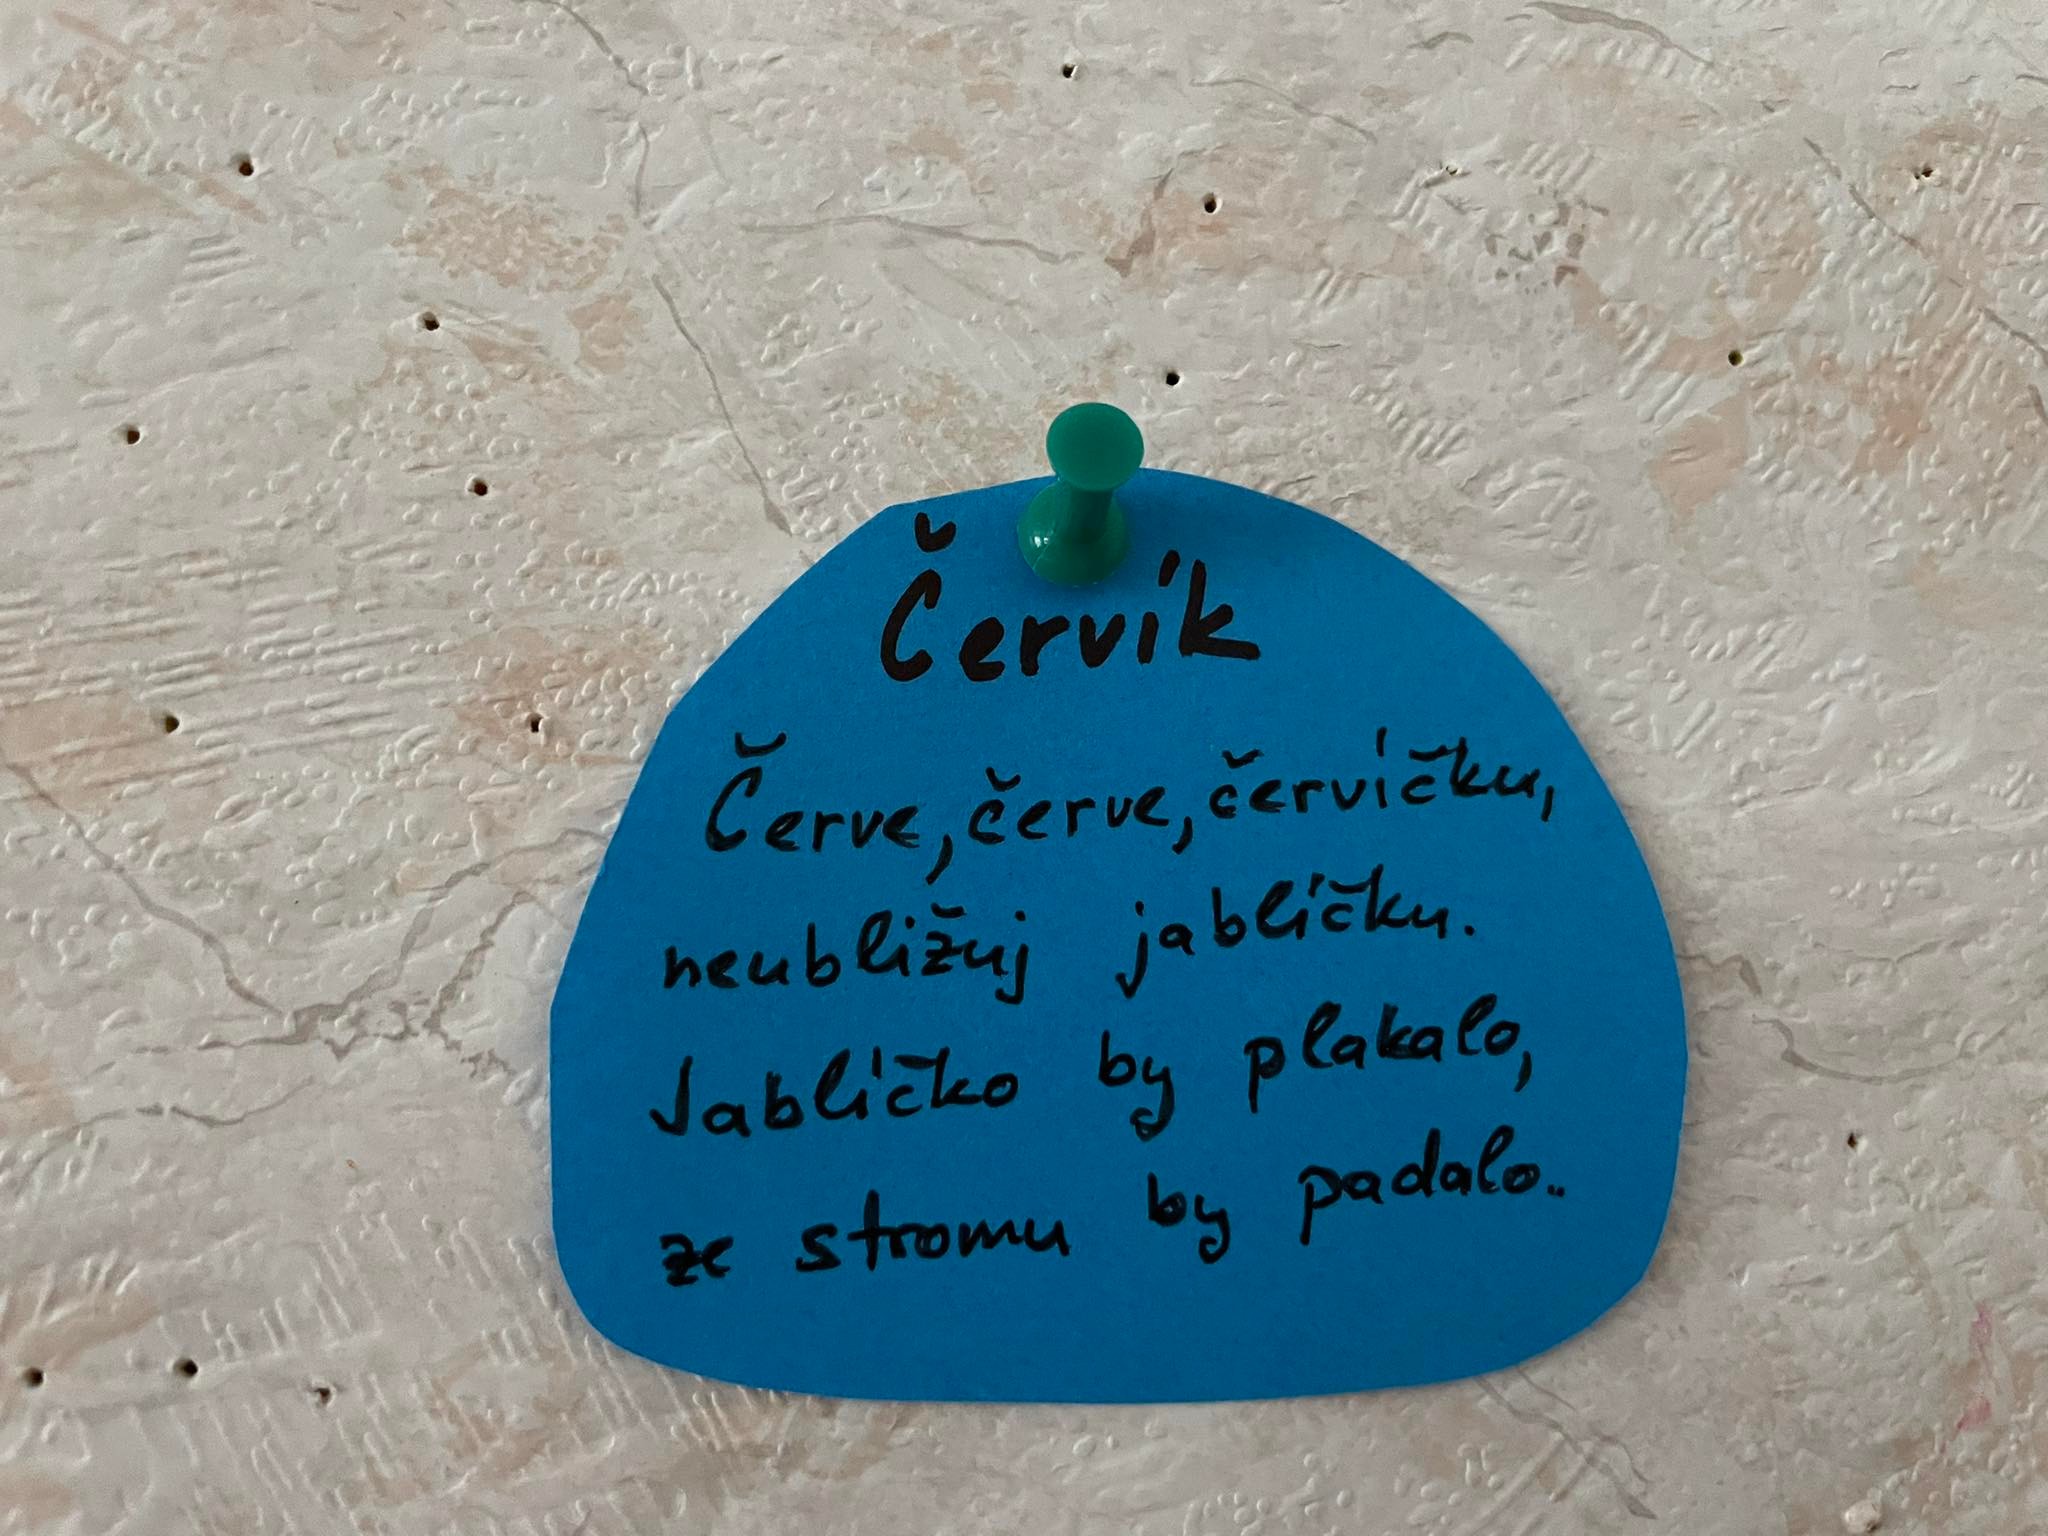 Červík
Červe, červe, červíčku,
neubližuj jablíčku.
Jablíčko by plakalo,
ze stromu by padalo..